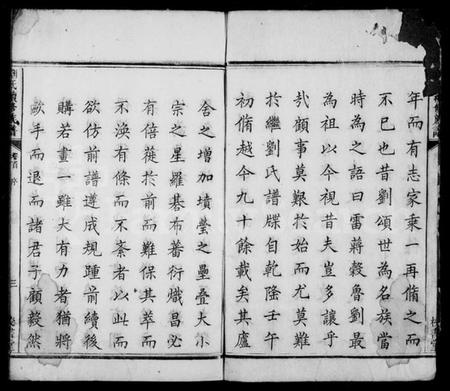 年而有志家乘一再脩之而
不已也昔劉頌世為名族當
時為之語曰雷蔣穀魯劉最
為祖以今視昔夫豈多讓乎
㢤顧事莫艱於始而尤莫難
於繼劉氏譜牒自乾隆壬午
初脩越今九十餘載矣其廬
舍之增加墳瑩之壘疊大小
宗之星羅碁布蕃衍熾昌必
有倍蓰於前而難保其萃而
不渙有條而不紊者以此而
欲仿前譜遵成規踵前續後
購若畫一雖大有力者猶將
歛手而退而諸君子顧毅然
三